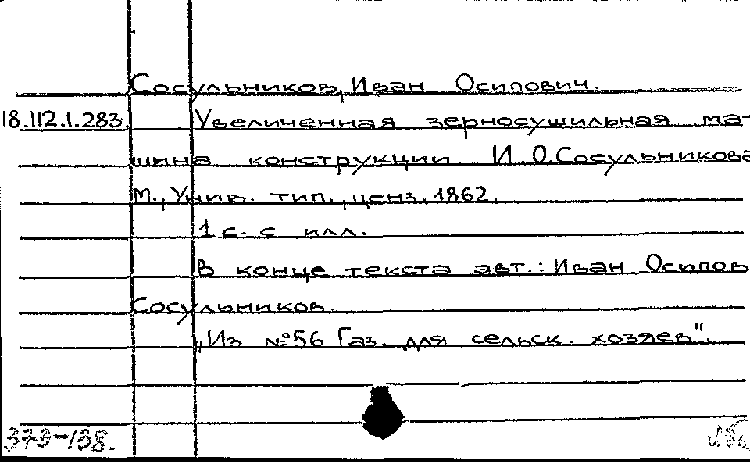 Сосульников, Иван Осипович.
18.112.1.283 Увеличенная зерносушильная ма-
шина конструкции И.О.Сосульникова
М., Унив. тип., ценз. 1862.
1 с. с илл.
В конце текста авт.: Иван Осипов
Сосульников
"Из №56 Газ. для сельск. хозяев".
373-138.